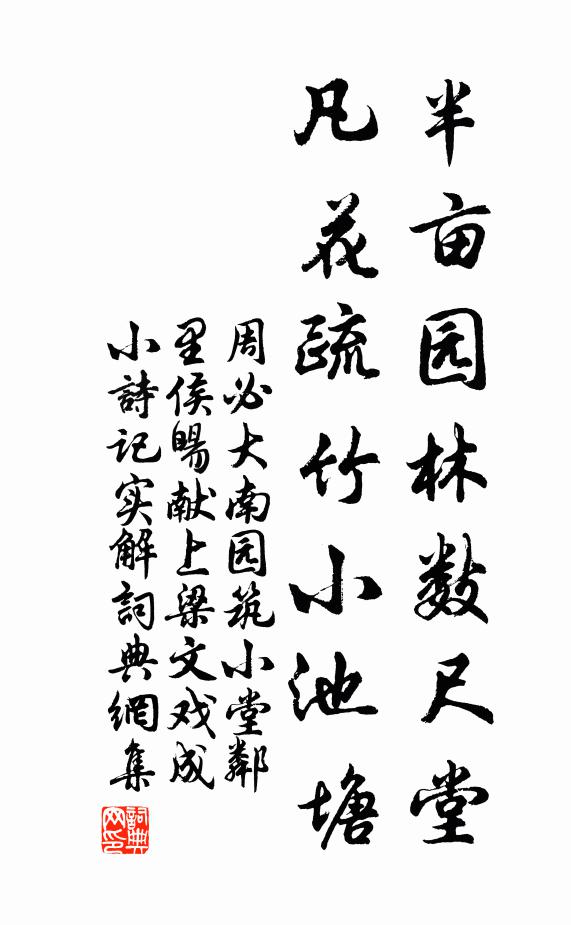 半亩园林数尺堂
凡花疏竹小池塘
周必大南园筑小堂鄰
里侯暘献上梁文戏成
小詩记实解詞典網集
詞典
网印